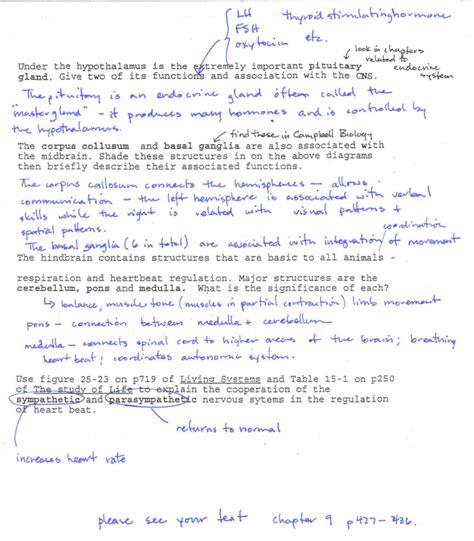 LH thyroid stimulating hormone
FSH
oxytocin etc.
look in chapters
related to
endocrine
system
Under the hypothalamus is the extremely important pituitary
gland. Give two of its functions and association with the CNS.
The pituitary is an endocrine gland often called the
"master gland" - it produces many hormones and is controlled by
the hypothalamus.
find these in Campbell Biology
The corpus collusum and basal ganglia are also associated with
the midbrain. Shade these structures in on the above diagrams
then briefly describe their associated functions.
The corpus callosum connects the hemispheres – allows
communication – the left hemisphere is associated with verbal
skills while the right is related with visual patterns +
spatial patterns.
coordination
The basal ganglia (6 in total) are associated with integration of movement
The hindbrain contains structures that are basic to all animals -
respiration and heartbeat regulation. Major structures are the
cerebellum, pons and medulla. What is the significance of each?
↳ balance, muscle tone (muscles in partial contraction) limb movement
pons – connection between medulla + cerebellum
medulla – connects spinal cord to higher areas of the brain; breathing
heart beat; coordinates autonomic system.
Use figure 25-23 on p719 of Living Systems and Table 15-1 on p250
of The study of Life to explain the cooperation of the
sympathetic and parasympathetic nervous sytems in the regulation
of heart beat.
returns to normal
increases heart rate
please see your text chapter 9 p427-436.